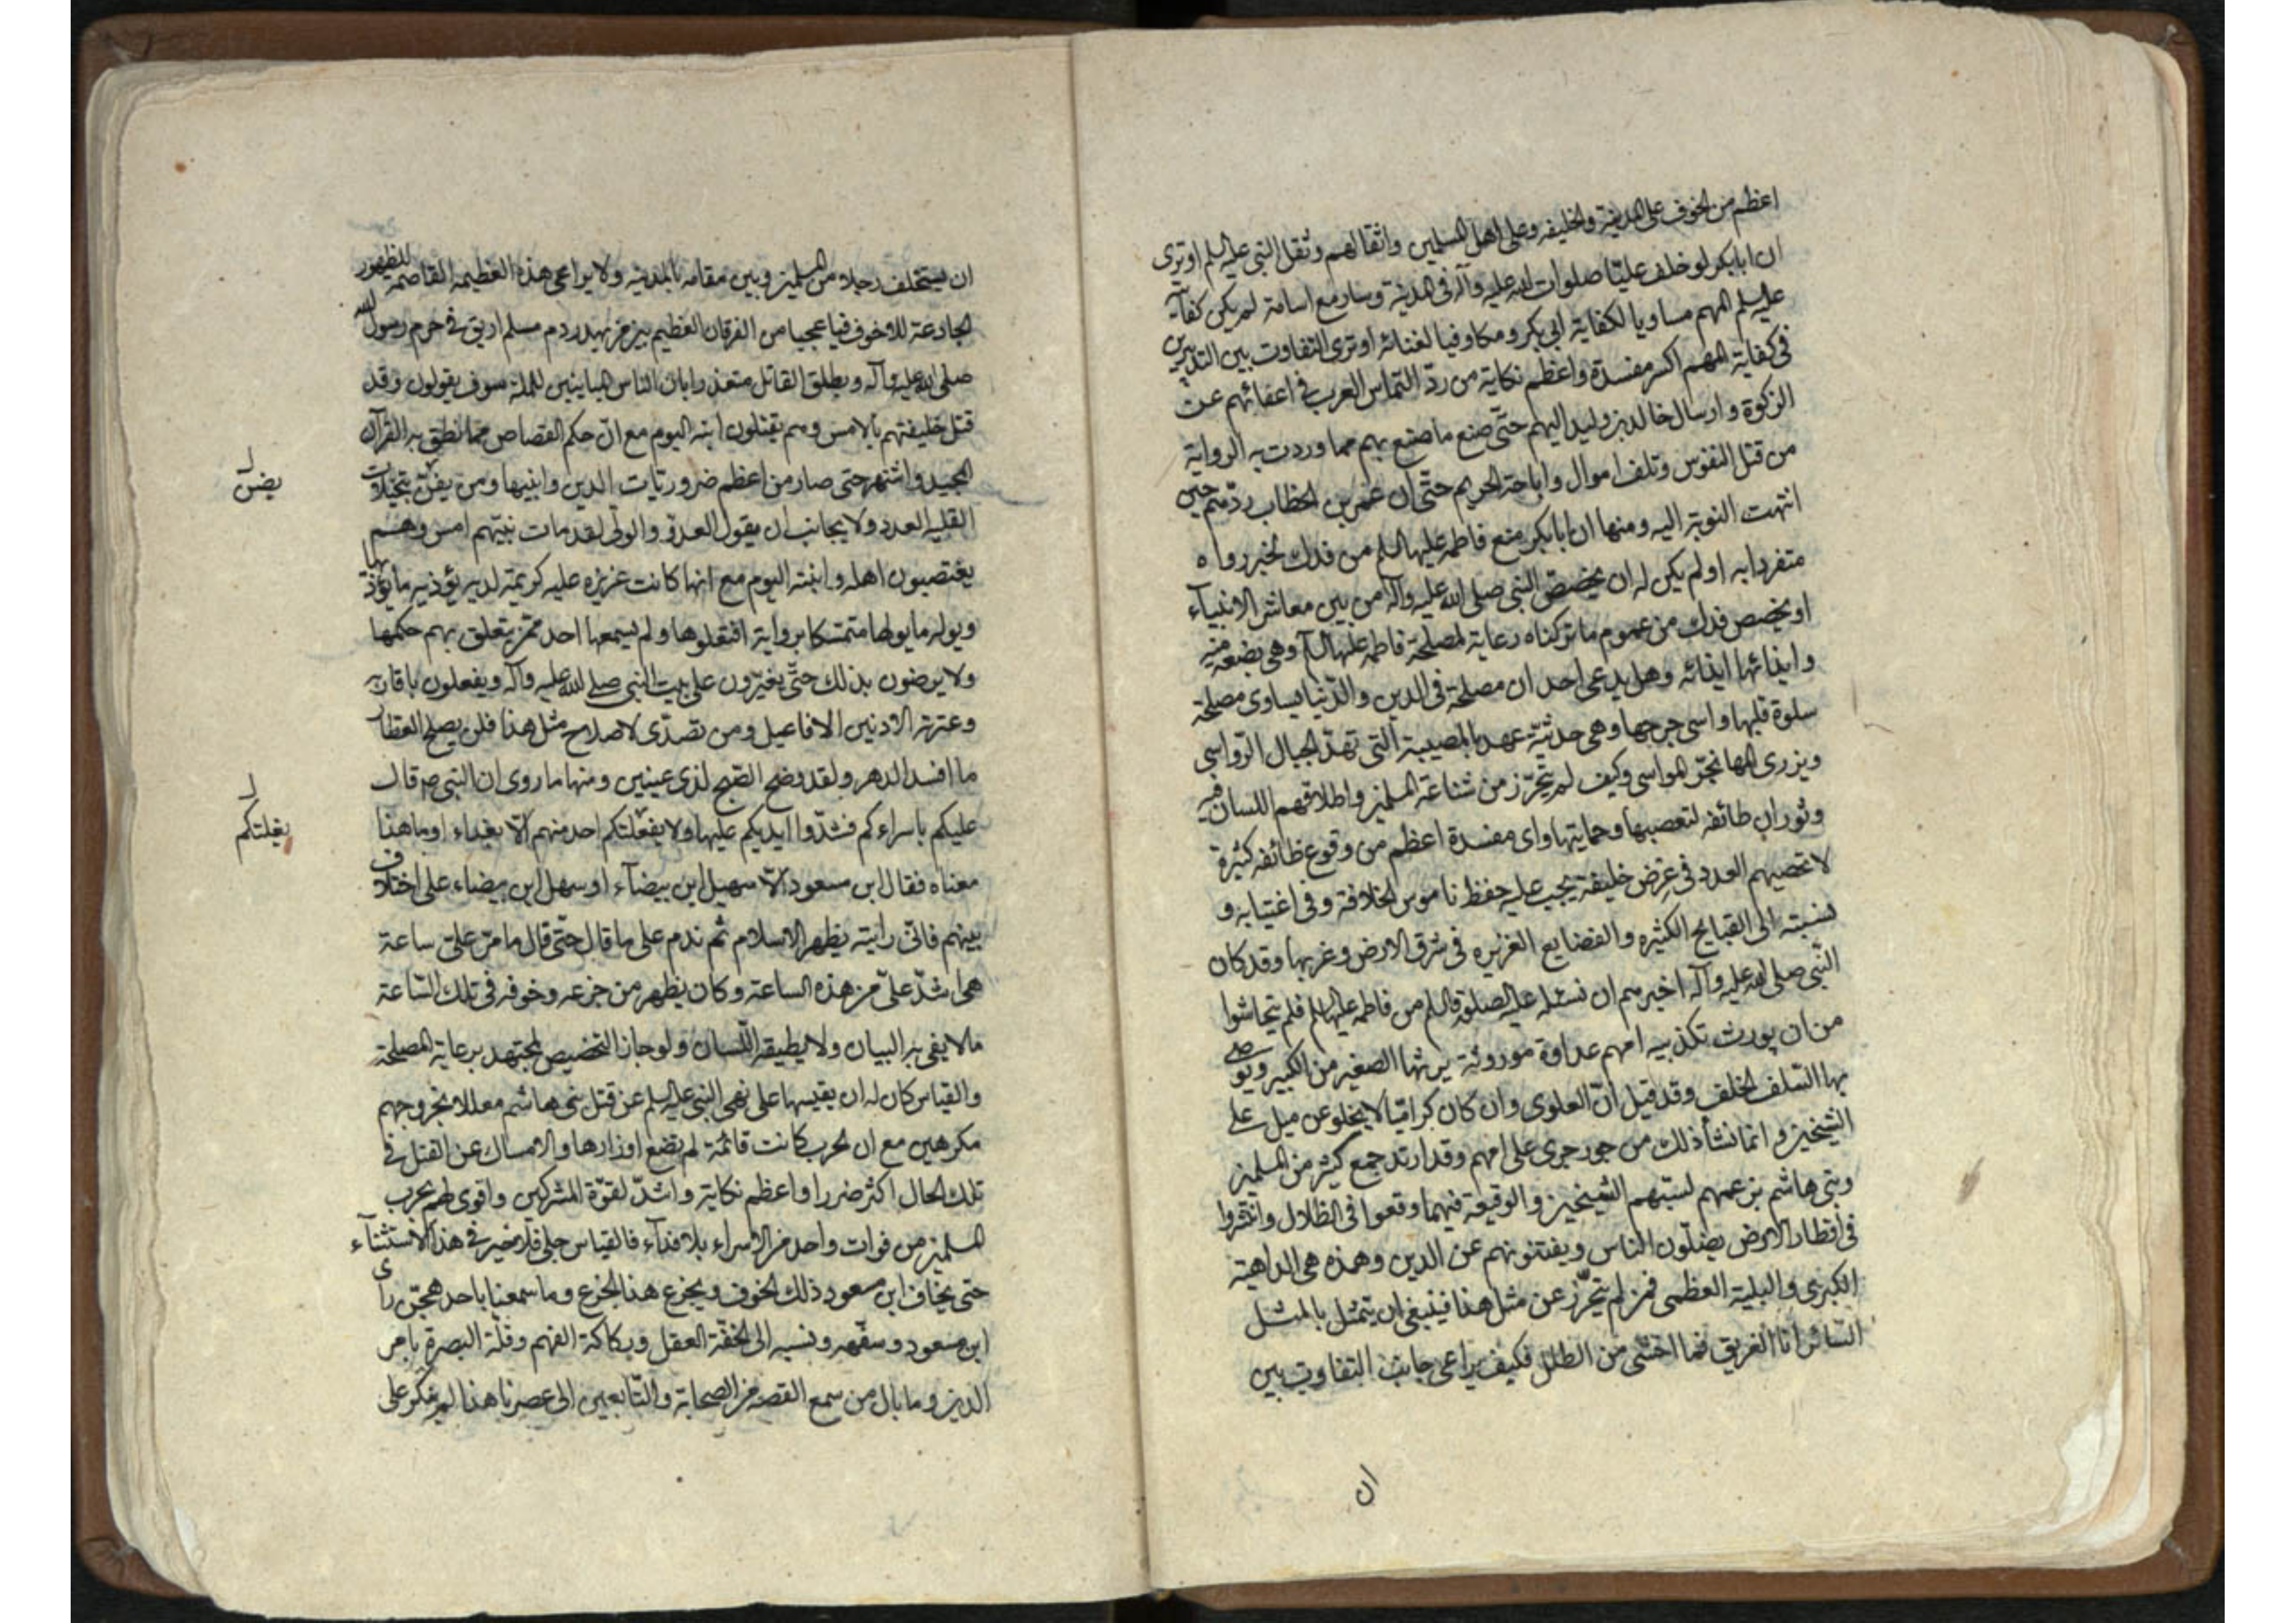 اعظم من الخوف على المدينة والخليفه وعلى اهل المسلمين واثقالهم وثقل النبى عليه السلم اوترى
ان ابابكر لو خلف عليّا صلوات الله عليه وآله فى المدينة وسار مع اسامة لم يكن كفآية
عليه السلم المهم مساويا لكفاية ابى بكر ومكاوفيا لغنائه اوترى التفاوت بين التدبيرين
فى كفاية المهم اكسر مفسدة واعظم نكاية من ردّ التماس العرب فى اعفائهم عن
الزكوة وارسال خالد بن وليد اليهم حتّى صنع ما صنع بهم مما وردت به الرواية
من قتل النفوس وتلف اموال واباحة الحريم حتّى ان عمر بن الخطاب ردّهم حين
انتهت النوبة اليه ومنها ان ابابكر منع فاطمة عليها السلم من فدك لخبر رواه
متفردا به اولم يكن له ان يخصّص النبى صلى الله عليه وآله من بين معاشر الانبيآء
او يخصص فدك من عموم ما تركناه رعاية لمصلحة فاطمه عليها السلم وهى بضعة منه
وايذائها ايذائه وهل يدعى احد ان مصلحة فى الدين والدّنيا يساوى مصلحة
سلوة قلبها واسى جرحها وهى حدثية عهد بالمصيبة التى تهدّ الجبال الرّواسى
ويزرى المها نجزّ المواسى وكيف لم يتحرّز من شناعة المسلمين واطلاقهم اللسان فيه
وثوران طائفه لتعصبها وحمايتها واى مفسدة اعظم من وقوع طائفه كثيرة
لا تحصيهم العدد فى عرض خليفة يجب عليه حفظ ناموس الخلافة وفى اغتيابه و
نسبته الى القبايح الكثيره والفضايع الغزيره فى شرق الارض وغربها وقد كان
النّبى صلى الله عليه وآله اخيرهم ان نسئله عليه الصلوة والسلم من فاطمه عليها السلم فلم يتحاشوا
من ان يورث تكذيبه امهم عداوة موروثة يرثها الصغير من الكبير ويوصى
بها السّلف الخلف وقد قيل انّ العلوى وان كان كراميّا لا يخلو عن ميل على
الشيخين وانما نشأ ذلك من جور جرى على امهم وقد ارتد جمع كثير من المسلمين
وبنى هاشم بن عمهم لسبّهم الشيخين والوقيعة فيهما وقعوا فى الظلال وانتشروا
فى اقطار الارض يضلّون الناس ويفتنونهم عن الدين وهذه هى الداهية
الكبرى والبلية العظمى فمن لم يتحرّز عن مثل هذا فينبغى ان يتمثل بالمثل
السّائر انا الغريق فما اخشى من الطلل فكيف يراعى جانب التفاوت بين
ان
ان يستخلف رجلا من المسلمين وبين مقامه بالمدينه ولا يراعى هذه العظيمه القاصمة للظهور
الجادعة للاخوف فيا عجبا من الفرقان العظيم بين من يهدر دم مسلم اريق فى حرم رسول الله
صلى الله عليه وآله ويطلق القاتل متعذرا بان الناس المباينين للملة سوف يقولون وقد
قتل خليفتهم بالامس وهم يقتلون ابنه اليوم مع انّ حكم القصاص مما نطق به القرآن
المجيد واشتهر حتى صار من اعظم ضروريات الدين وابنيها ومن يفتّ بتخيلات
يضن
القليه العدد ولا يجانب ان يقول العدوّ والولى لقد مات نبيّهم امس وهم
يغتصبون اهله وابنته اليوم مع انها كانت عزيزه عليه كريمة لديه يؤذيه ما يؤذيها
ويوله ما يولها متمسّكا برواية افتعلوها ولم يسمعها احد ممّن يتعلق بهم حكمها
ولا يرضون بذلك حتّى يغيّرون على بيت النبى صلى الله عليه وآله ويفعلون باقاربه
وعترته الادنين الافاعيل ومن تصدّى لاصلاح مثل هذا فلن يصلح العطار
ما افسد الدهر ولقد وضح الصّبح لذى عينين ومنها ما روى ان النبى ص قال
عليكم باسراءكم فشدّوا ايديكم عليها ولا يفعلتكم احد منهم الّا بفداء او ما هذا
يفلتكم
معناه فقال ابن مسعود الّا سهيل ابن بيضآء او سهل ابن بيضاء على اختلاف
بينهم فانّى رايته يظهر الاسلام ثم ندم على ما قال حتّى قال ما مرّ علىّ ساعة
هى اشدّ علىّ من هذه الساعة وكان يظهر من جزعه وخوفه فى تلك السّاعة
ما لا يفى به البيان ولا يطيقه اللّسان ولو جاز التخصيص لمجتهد برعاية المصلحة
والقياس كان له ان يقيسها على نهى النبى عليه السلم عن قتل بنى هاشم معللا بخروجهم
مكرهين مع ان الحرب كانت قائمة لم تضع اوزارها والامساك عن القتل فى
تلك الحال اكثر ضررا واعظم نكاية واشدّ لقوّة المشركين واقوى لهم بحرب
المسلمين من فوات واحد من الاسراء بلا فدآء فالقياس جلى فلا ضير فى هذا الاستثنآء
حتى يخاف ابن مسعود ذلك الخوف ويجزع هذا الجزع وما سمعنا باحد هجّن رأى
ابن مسعود وسفّهه ونسبه الى الخفّة العقل وركاكة الفهم وقلّة البصرة بامر
الدين وما بال من سمع القصه من الصحابة والتّابعين الى عصرنا هذا لم ينكر على